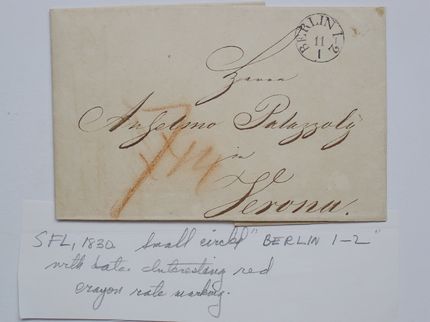 BERLIN 1-2
11
1
Herrn
Anselmo Palazzoly
in
Verona.
7
SFL, 1830 Small circled "BERLIN 1-2"
with date. Interesting red
crayon rate marking.